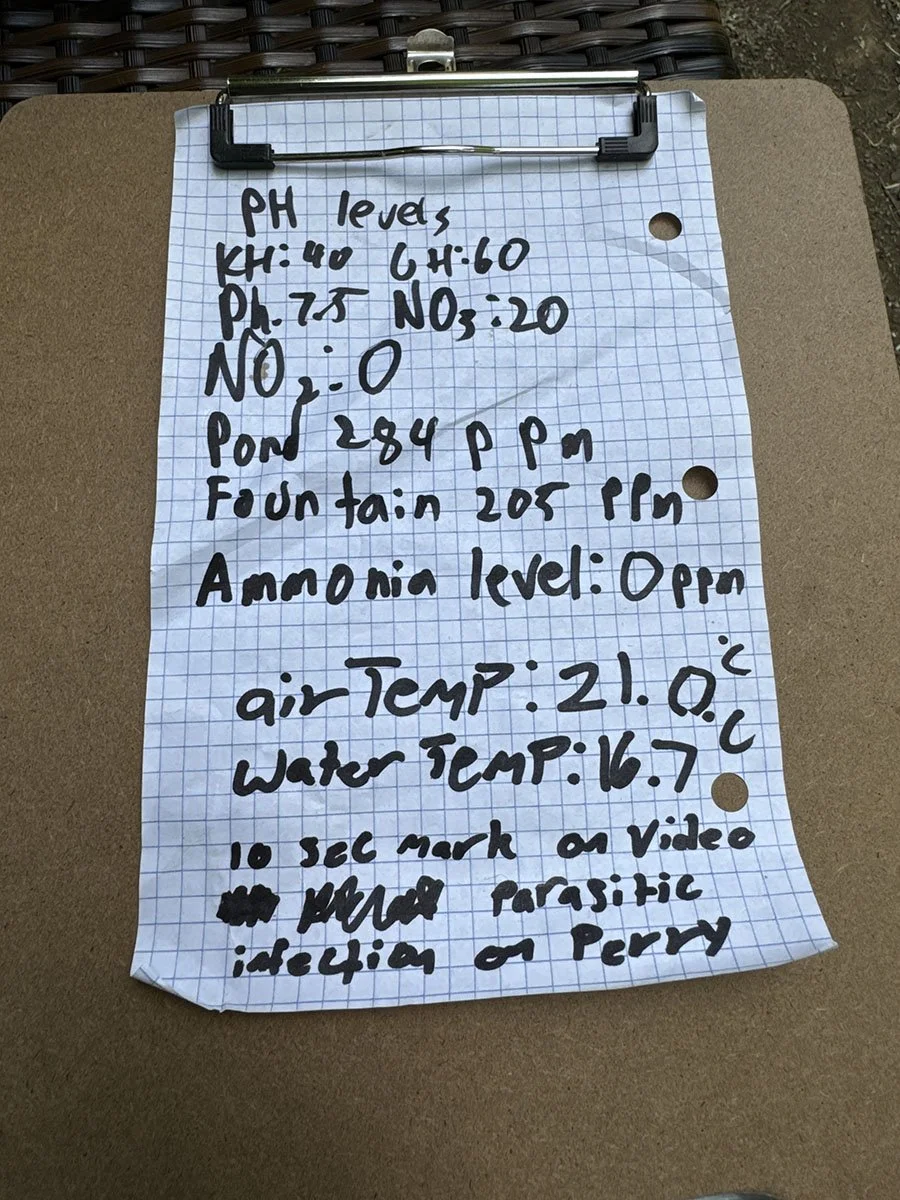 PH levels
KH: 40 GH: 60
Ph. 7.5 NO3: 20
NO2: 0
Pond 284 PPm
Fountain 205 PPm
Ammonia level: 0 ppm
air Temp: 21.0°C
Water Temp: 16.7°C
10 sec mark on Video
Parasitic
infection on Perry